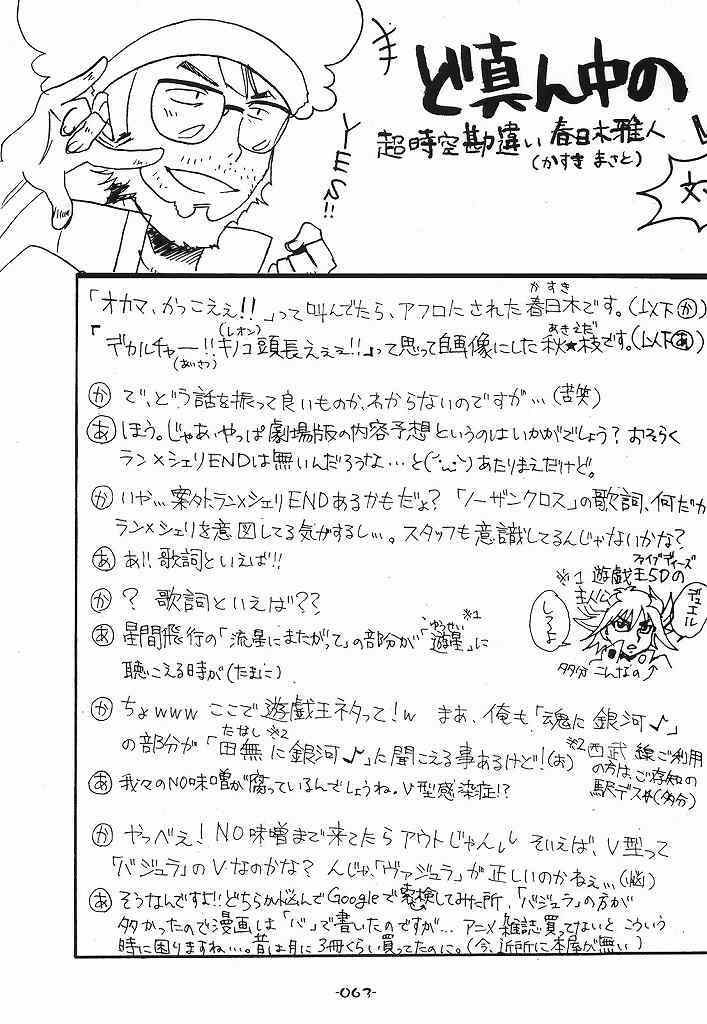 ど真ん中の
超時空勘違い 春日木雅人
(かすき まさと)
イエス!!
「オカマ、かっこえぇ!!」って叫んでたら、アフロにされた春日木です。(以下か)
かすき
「デカルチャー!!キノコ頭長えぇぇ!!」って思って自画像にした秋★枝です。(以下あ)
(あいさつ)
(レオン)
あきえだ
か で、どう話を振って良いものか、わからないのですが…(苦笑)
あ ほう。じゃあ、やっぱ劇場版の内容予想というのはいかがでしょう?おそらく
ラン×シェリENDは無いんだろうな…と(´･ω･`)あたりまえだけど。
か いや…案外ラン×シェリENDあるかもだよ?「ノーザンクロス」の歌詞、何だか
ラン×シェリを意図してる気がするし…。スタッフも意識してるんじゃないかな?
あ あ!!歌詞といえば!!
か ? 歌詞といえば??
あ 星間飛行の「流星にまたがって」の部分が「遊星」に
ゆうせい
※1
聴こえる時が(たまに)
※1 遊戯王5Dの
ファイブディーズ
主人公
デュエル
しろよ
多分こんなの
か ちょwww ここで遊戯王ネタって!w まあ、俺も「魂に銀河♪」
の部分が「田無に銀河♪」に聞こえる事あるけど!(お)
たなし ※2
※2 西武線ご利用
の方はご存知の
駅デス(多分)
あ 我々のNO味噌が腐っているんでしょうね。V型感染症!?
か やっべえ!NO味噌まで来てたらアウトじゃん そいえば、V型って
「バジュラ」のVなのかな? んじゃ、「ヴァジュラ」が正しいのかねぇ…(悩)
あ そうなんですよ!!どちらか悩んでGoogleで検索してみた所、「バジュラ」の方が
多かったので漫画は「バ」で書いたのですが… アニメ雑誌買ってないとこういう
時に困りますねぃ…。昔は月に3冊くらい買ってたのに。(今、近所に本屋が無い)
-063-